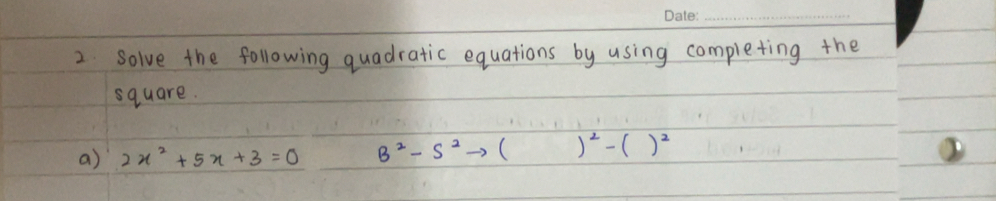 Date:
2. Solve the following quadratic equations by using completing the
square.
a) 2x² + 5x + 3 = 0 B² - S² → ( )² - ( )²